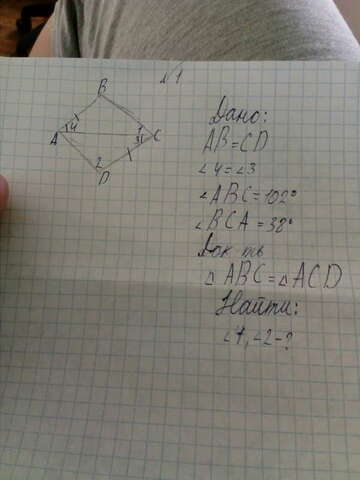 №1
B
A 4 1 C
3
2
D
Дано:
AB=CD
∠4=∠3
∠ABC=102°
∠BCA=38°
Док ть
△ABC=△ACD
Найти:
∠1,∠2-?